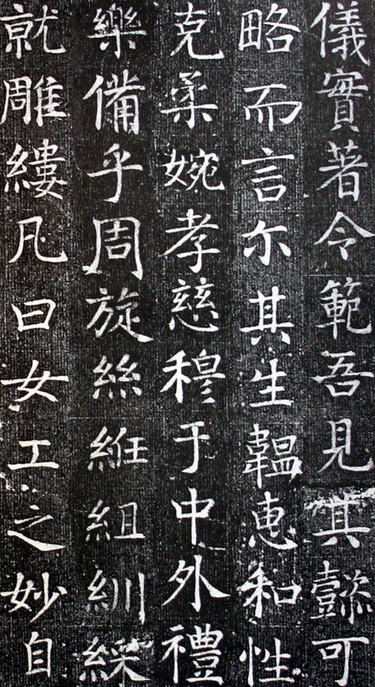 儀實著令範吾見其懿可
略而言尓其生韞恵和性
克柔婉孝慈穆于中外禮
樂備乎周旋絲絍組紃綵
就雕縷凡曰女工之妙自